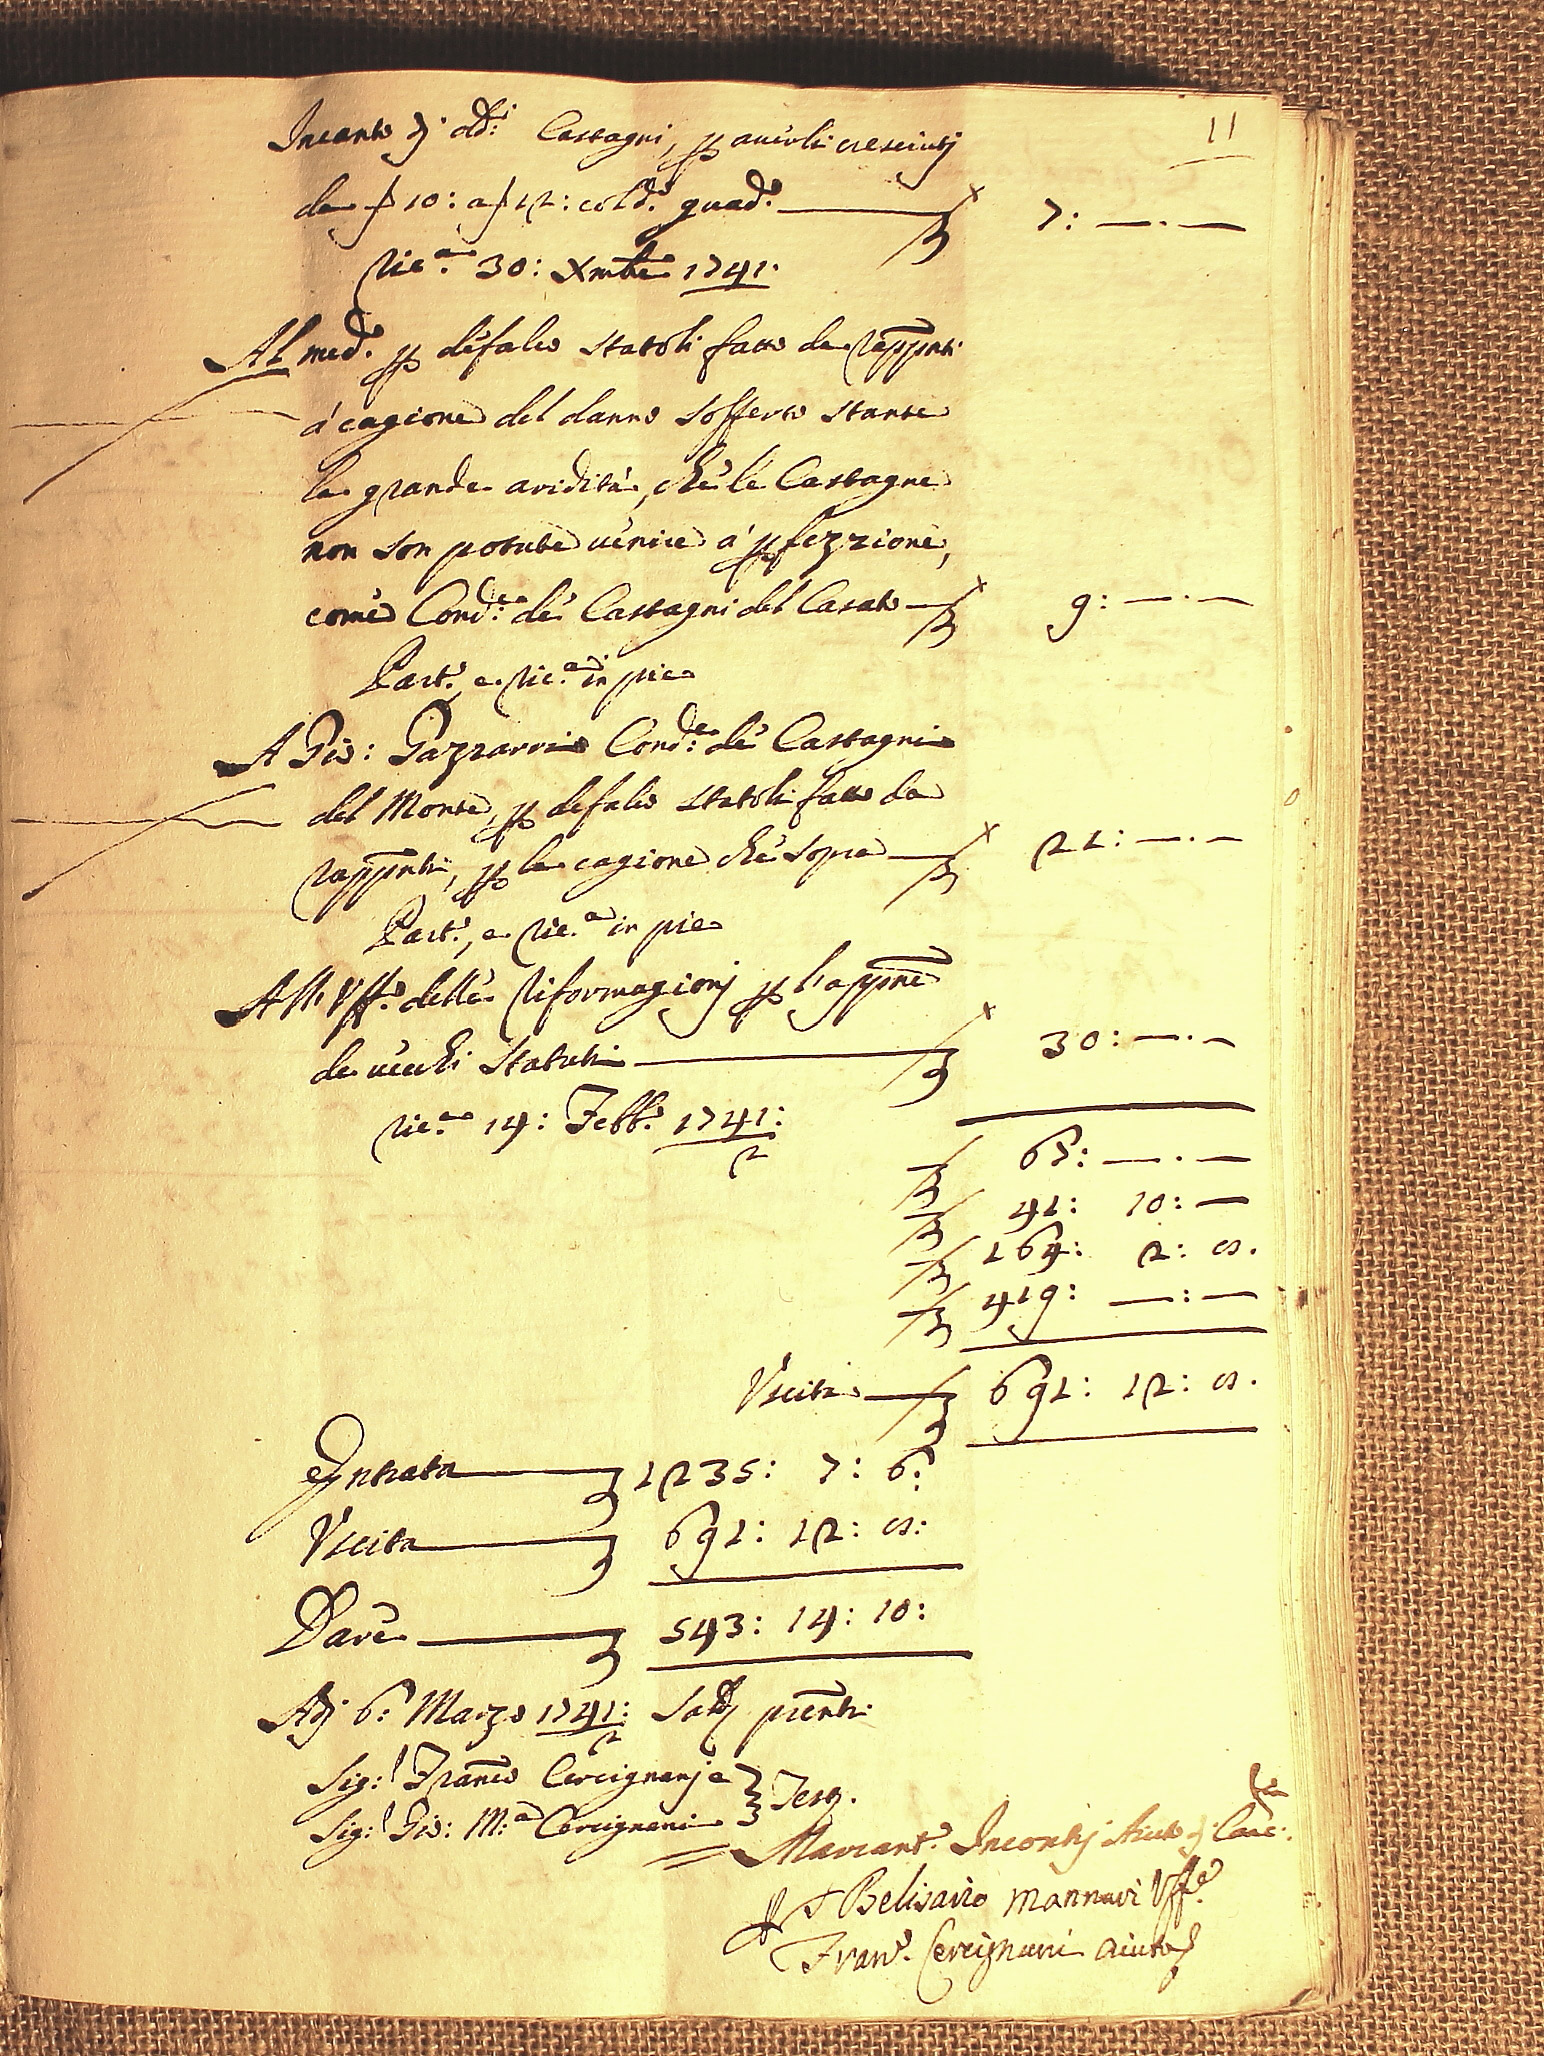 11
Incanto di dd.i Castagni, p averli cresciuti
da f 10: a f 12: cold.o quad.o 7: —.—
Ric.a 30: Xmbre 1741.
Al med.o p défalco statoli fatto da Rapp̄nti
á cagione del danno sofferto stante
la grande aridità, ché lé Castagne
non son potute venire á pfezzione,
comé Cond.re dé Castagni del Casato 9: —.—
Part.o e Ric.a in pie
A Gio: Gazzarrini Cond.re dé Castagni
del Monte, p defalco statoli fatto da
Rapp̄nti, p la cagione ché sopra 21: —.—
Part.o, e Ric.a in pie
All' Uff.o dellé Riformagioni p l'app̄ne
de vecchi Statuti 30: —.—
Ric.a 14: Febb.o 1741:
2
67: —.—
41: 10: —
164: 2: 8.
419: —:—
Uscita 691: 12: 8.
Entrata 1235: 7: 6:
Uscita 691: 12: 8:
Daré 543: 14: 10:
Adi 6: Marzo 1741: Sald. p̄enti
2
Sig:r Franc.o Cercignani e
Sig:r Gio: M:a Cercignani } Test.
Marcant.o Incontri Aiuto di Canc:
Belisario Mannari Uff.e
Fran.o Cercignani aiuto